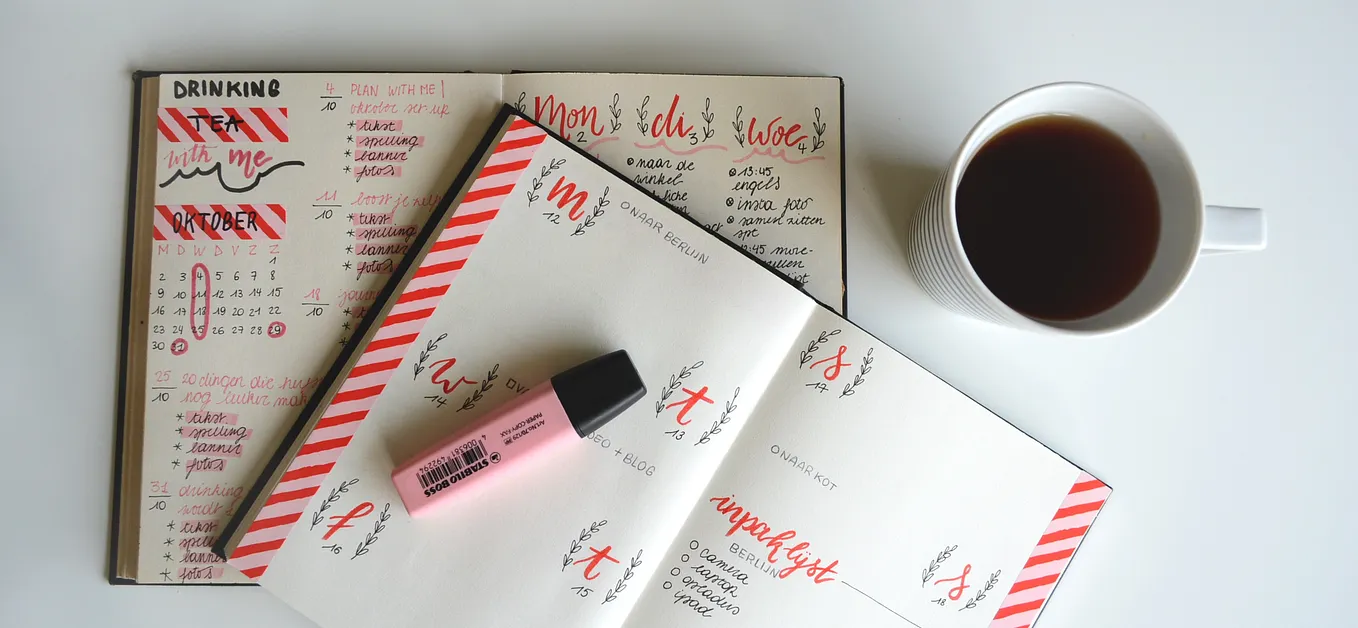 DRINKING
TEA
with me
OKTOBER
M D W D V Z Z
1
2 3 4 5 6 7 8
9 10 11 12 13 14 15
16 17 18 19 20 21 22
23 24 25 26 27 28 29
30 31
4/10 PLAN WITH ME!
oktober set up
* tekst
* spelling
* banner
* foto's
11/10 boost je
* tekst
* spelling
* banner
* foto's
18/10
25/10 20 dingen die
nog leuker
* tekst
* spelling
* banner
* foto's
31/10 drinking
wordt
* tekst
* banner
* foto's
Mon 2
di 3
woe 4
naar de
winkel
13:45
engels
insta foto
samen zitten
m
12
NAAR BERLIJN
w
14
t
13
DEO + BLOG
f
16
t
15
STABILO BOSS
PAPER COPY FAX
4 006381 492294
s
17
NAAR KOT
inpaklijst
BERLIJN
camera
laptop
opladers
ipad
s
18